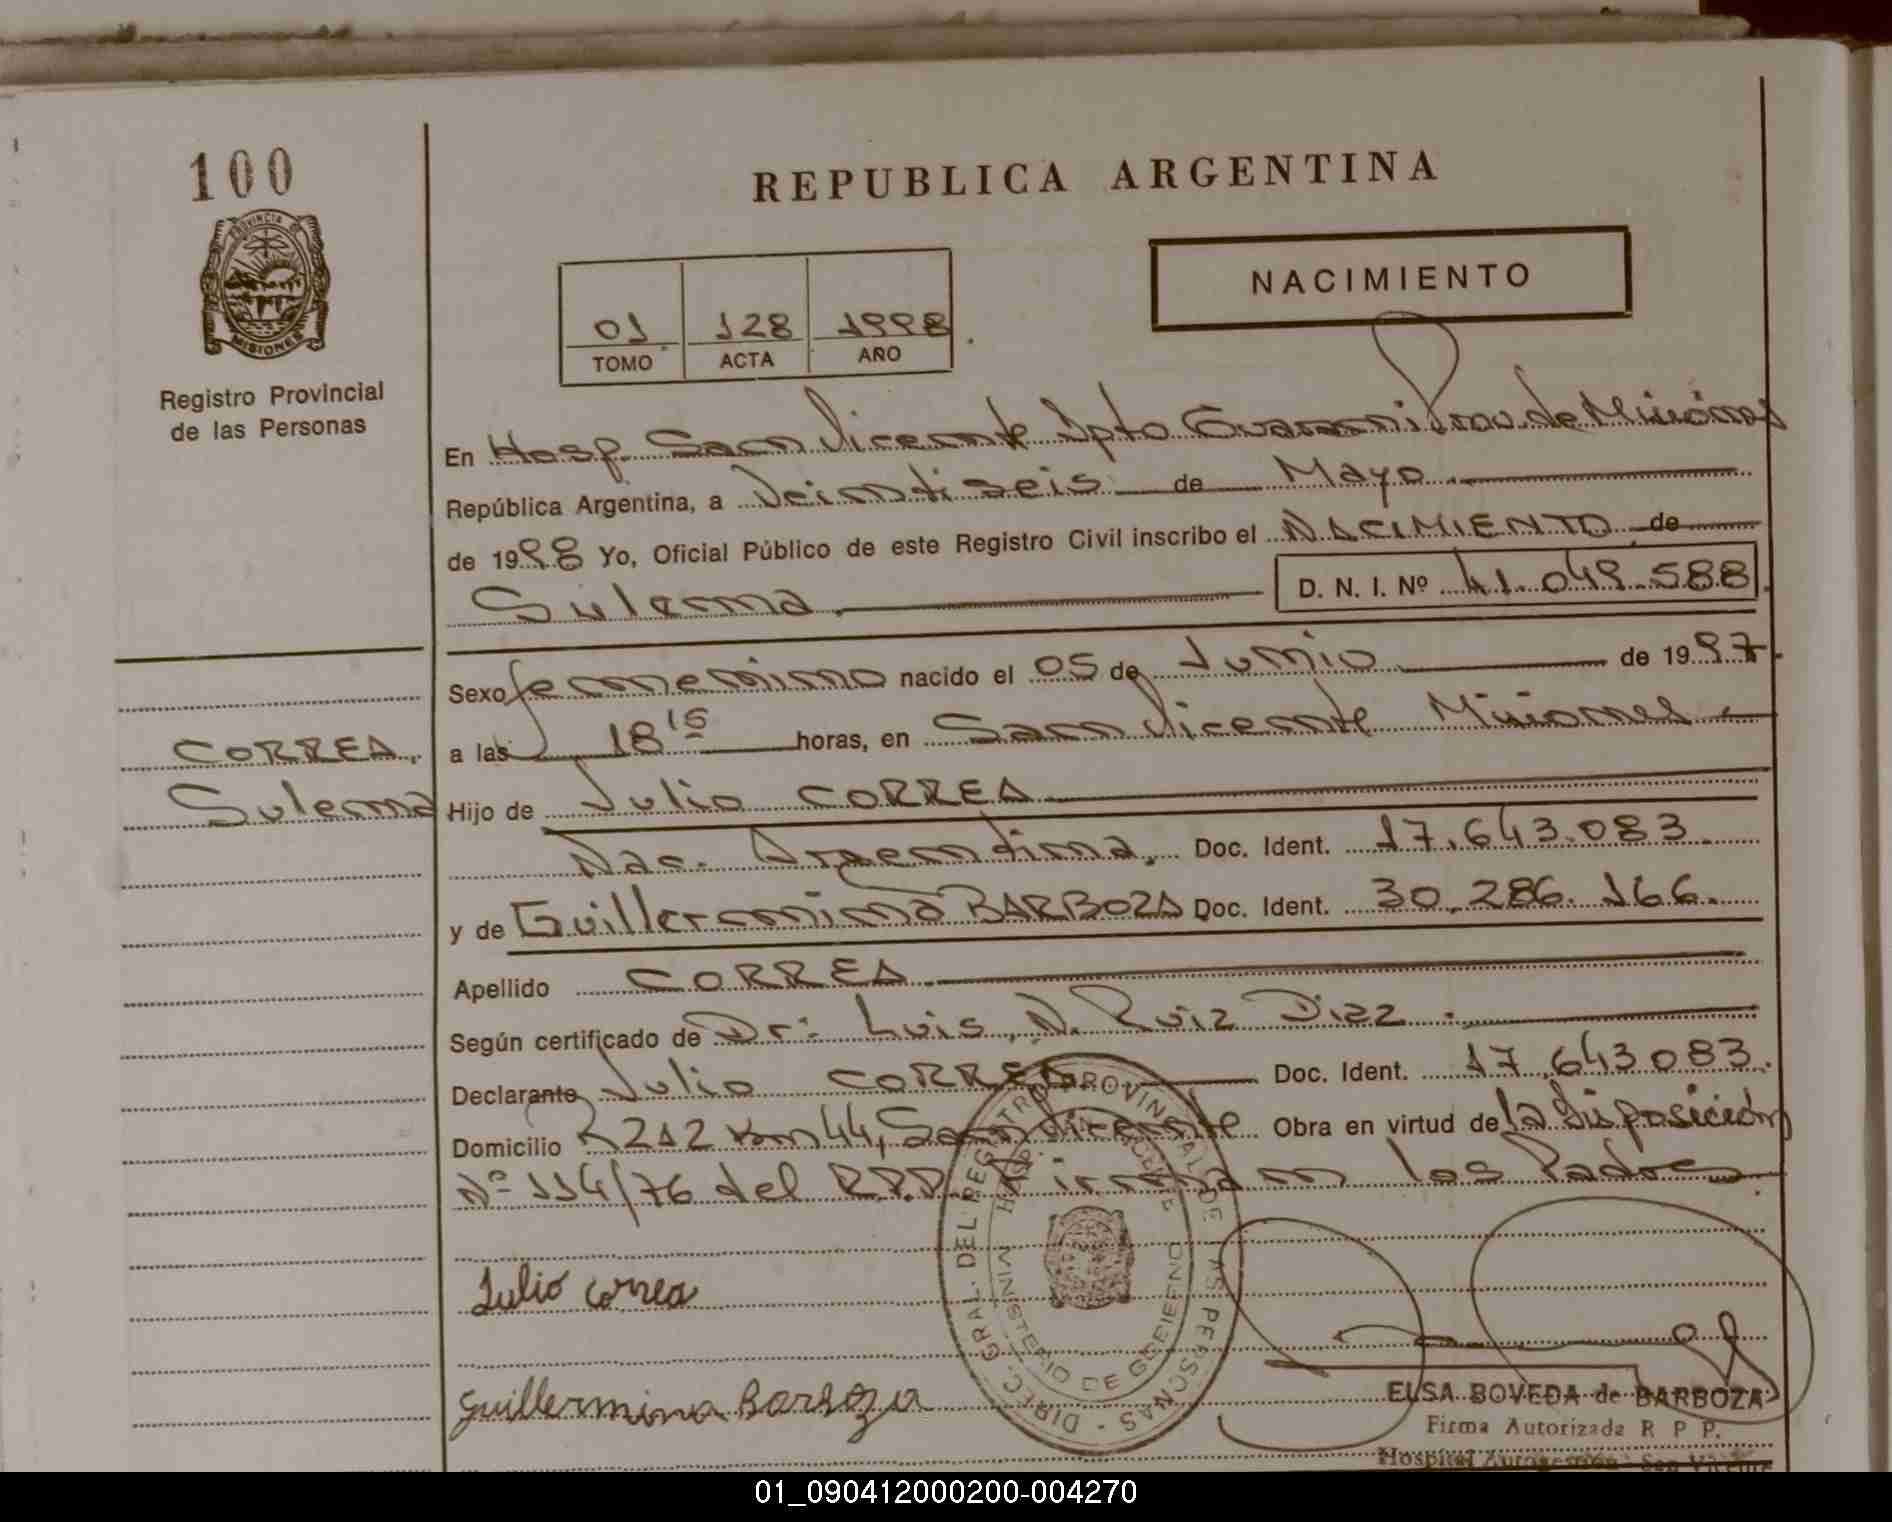 100
PROVINCIA DE
MISIONES
Registro Provincial
de las Personas
REPUBLICA ARGENTINA
NACIMIENTO
01 128 1998
TOMO ACTA AÑO
En Hosp. San Vicente Dpto Guarani Prov. de Misiónes
República Argentina, a Veintiseis de Mayo
de 1998 Yo, Oficial Público de este Registro Civil inscribo el NACIMIENTO de
Sulema D. N. I. Nº 41.049.588
Sexo femenino nacido el 05 de Junio de 1997
a las 18 15 horas, en San Vicente Misiones
CORREA.
Sulema
Hijo de Julio CORREA
Nac. Argentina. Doc. Ident. 17.643.083.
y de Guillermina BARBOZA Doc. Ident. 30.286.166.
Apellido CORREA
Según certificado de Dr: Luis, N. Ruiz Diaz.
Declarante Julio CORREA Doc. Ident. 17.643083.
Domicilio R212 Km 44, San Vicente Obra en virtud de la Disposición
Nº 114/76 del R.P.P. Firman los Padres
DIREC. GRAL. DEL REGISTRO PROVINCIAL DE LAS PERSONAS -
MINISTERIO DE GOBIERNO
Julio Correa
Guillermina Barboza
ELSA BOVEDA de BARBOZA
Firma Autorizada R P P.
Hospital Autogestión San Vicente
01_090412000200-004270